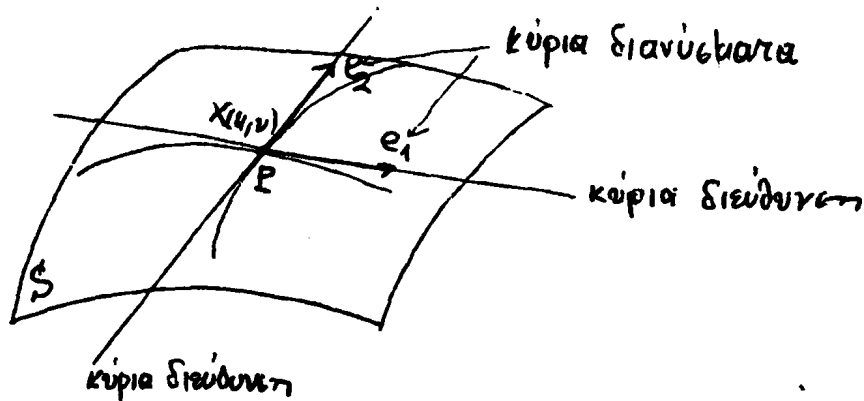 κύρια διανύσματα
e₂
X(u,v)
e₁
P
κύρια διεύθυνση
S
κύρια διεύθυνση